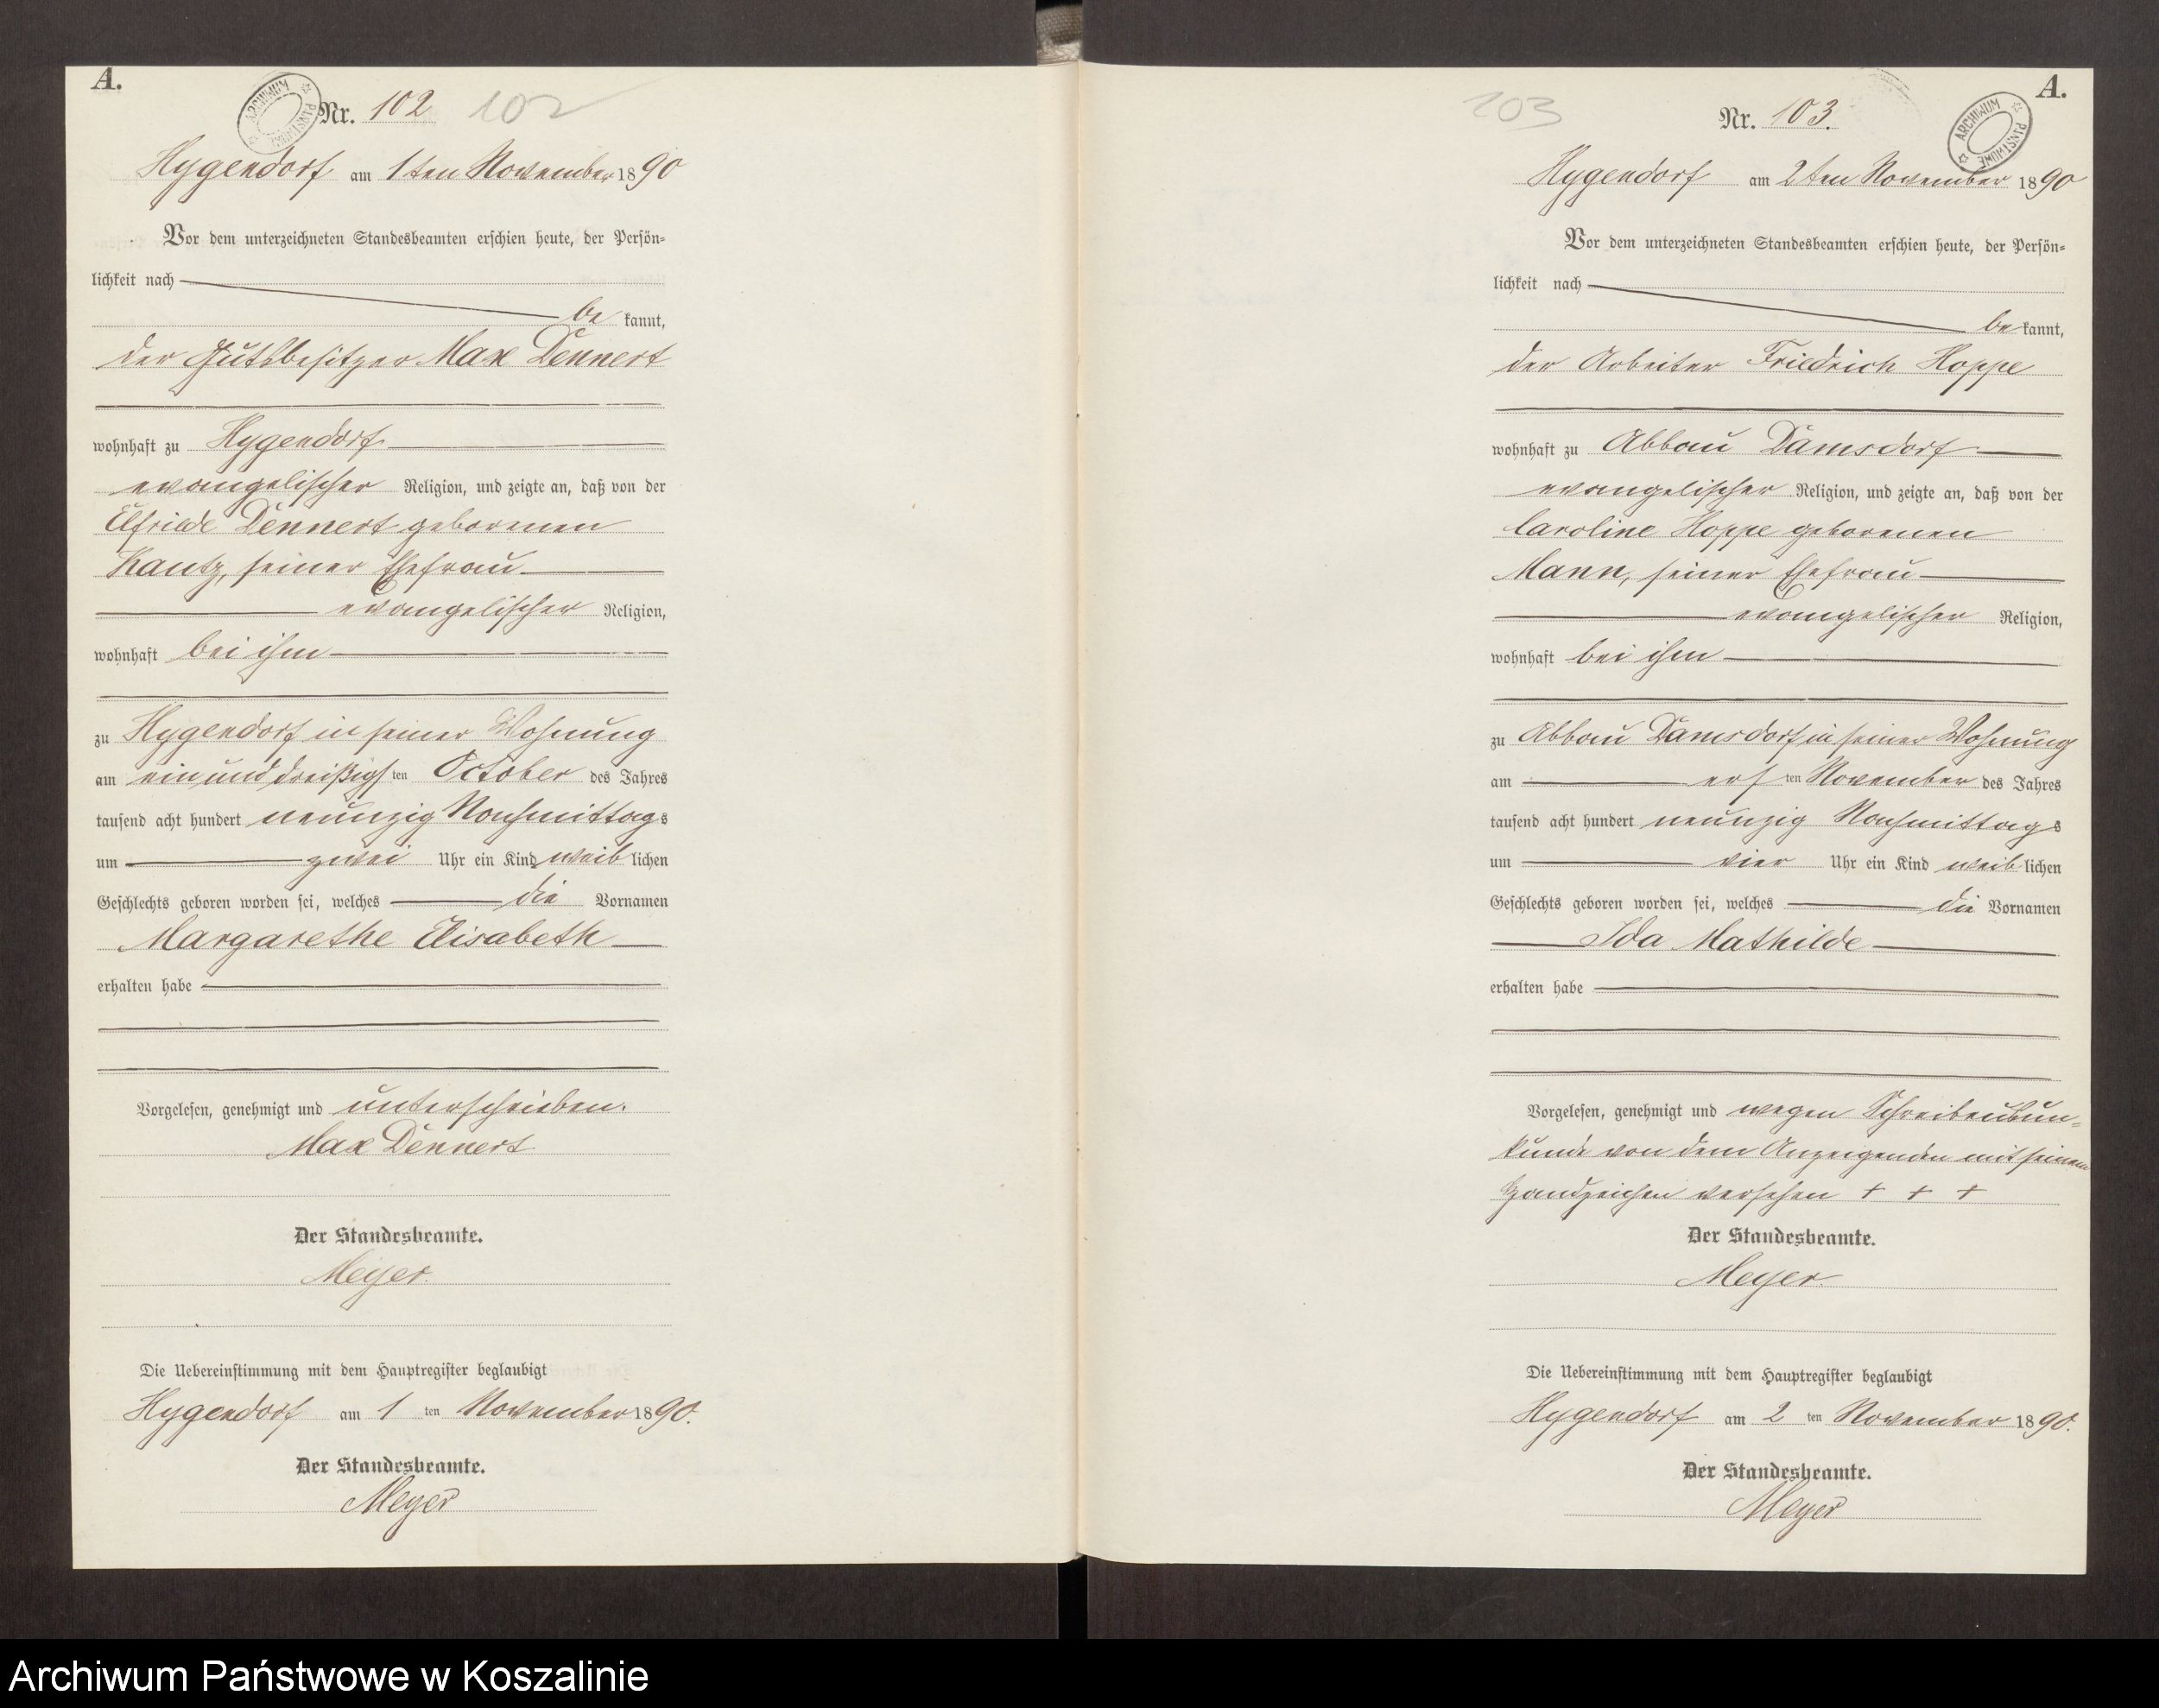 A.
ARCHIWUM PAŃSTWOWE
Nr. 102 102
Hygendorf am 1ten November 1890
Vor dem unterzeichneten Standesbeamten erschien heute, der Persön=
lichkeit nach
be kannt,
der Gutsbesitzer Max Dennert
wohnhaft zu Hygendorf
evangelischer Religion, und zeigte an, daß von der
Elfriede Dennert geborenen
Kautz, seiner Ehefrau
evangelischer Religion,
wohnhaft bei ihm
zu Hygendorf in seiner Wohnung
am ein und dreißigsten October des Jahres
tausend acht hundert neunzig Nachmittags
um zwei Uhr ein Kind weiblichen
Geschlechts geboren worden sei, welches die Vornamen
Margarethe Elisabeth
erhalten habe
Vorgelesen, genehmigt und unterschrieben.
Max Dennert
Der Standesbeamte.
Meyer.
Die Uebereinstimmung mit dem Hauptregister beglaubigt
Hygendorf am 1 ten November 1890.
Der Standesbeamte.
Meyer
A.
ARCHIWUM PAŃSTWOWE
103 Nr. 103.
Hygendorf am 2ten November 1890
Vor dem unterzeichneten Standesbeamten erschien heute, der Persön=
lichkeit nach
be kannt,
der Arbeiter Friedrich Hoppe
wohnhaft zu Abbau Damsdorf
evangelischer Religion, und zeigte an, daß von der
Caroline Hoppe geborenen
Mann, seiner Ehefrau
evangelischer Religion,
wohnhaft bei ihm
zu Abbau Damsdorf in seiner Wohnung
am ersten November des Jahres
tausend acht hundert neunzig Nachmittags
um vier Uhr ein Kind weiblichen
Geschlechts geboren worden sei, welches die Vornamen
Ida Mathilde
erhalten habe
Vorgelesen, genehmigt und wegen Schreibensun=
kunde von dem Anzeigenden mit seinem
Handzeichen versehen + + +
Der Standesbeamte.
Meyer
Die Uebereinstimmung mit dem Hauptregister beglaubigt
Hygendorf am 2 ten November 1890.
Der Standesbeamte.
Meyer
Archiwum Państwowe w Koszalinie